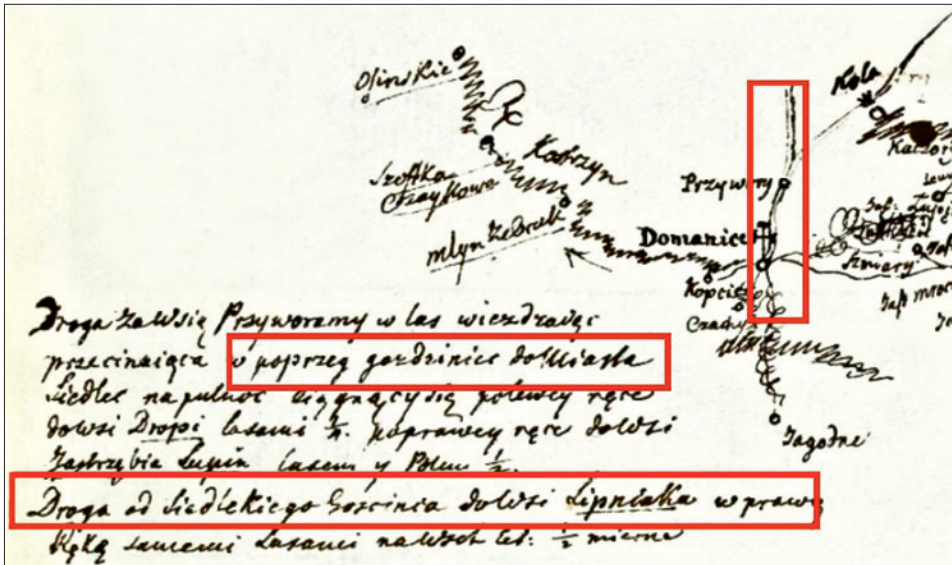 Kola
Osinskie
Kaczor
Szostka
Czaykowa
Kobrzyn
Przywory
młyn Żebrak
Domanice
Szmiary
Kopcie
Czachy
Jagodne
Droga za Wsią Przyworamy w las wiezdzaiąc
przecinaiąca w poprzeg gozdziniec do Miasta
Siedlec na pułnoc ciągnący się po lewey ręce
do wsi Dropi lasami ¼. po prawey ręce do Wsi
Jastrzębia Łupin lasem y Polem ½.
Droga od Siedleckiego Goscinca do Wsi Lipniaka w prawą
Rękę samemi Lasami na Wsch let: ½ mierne